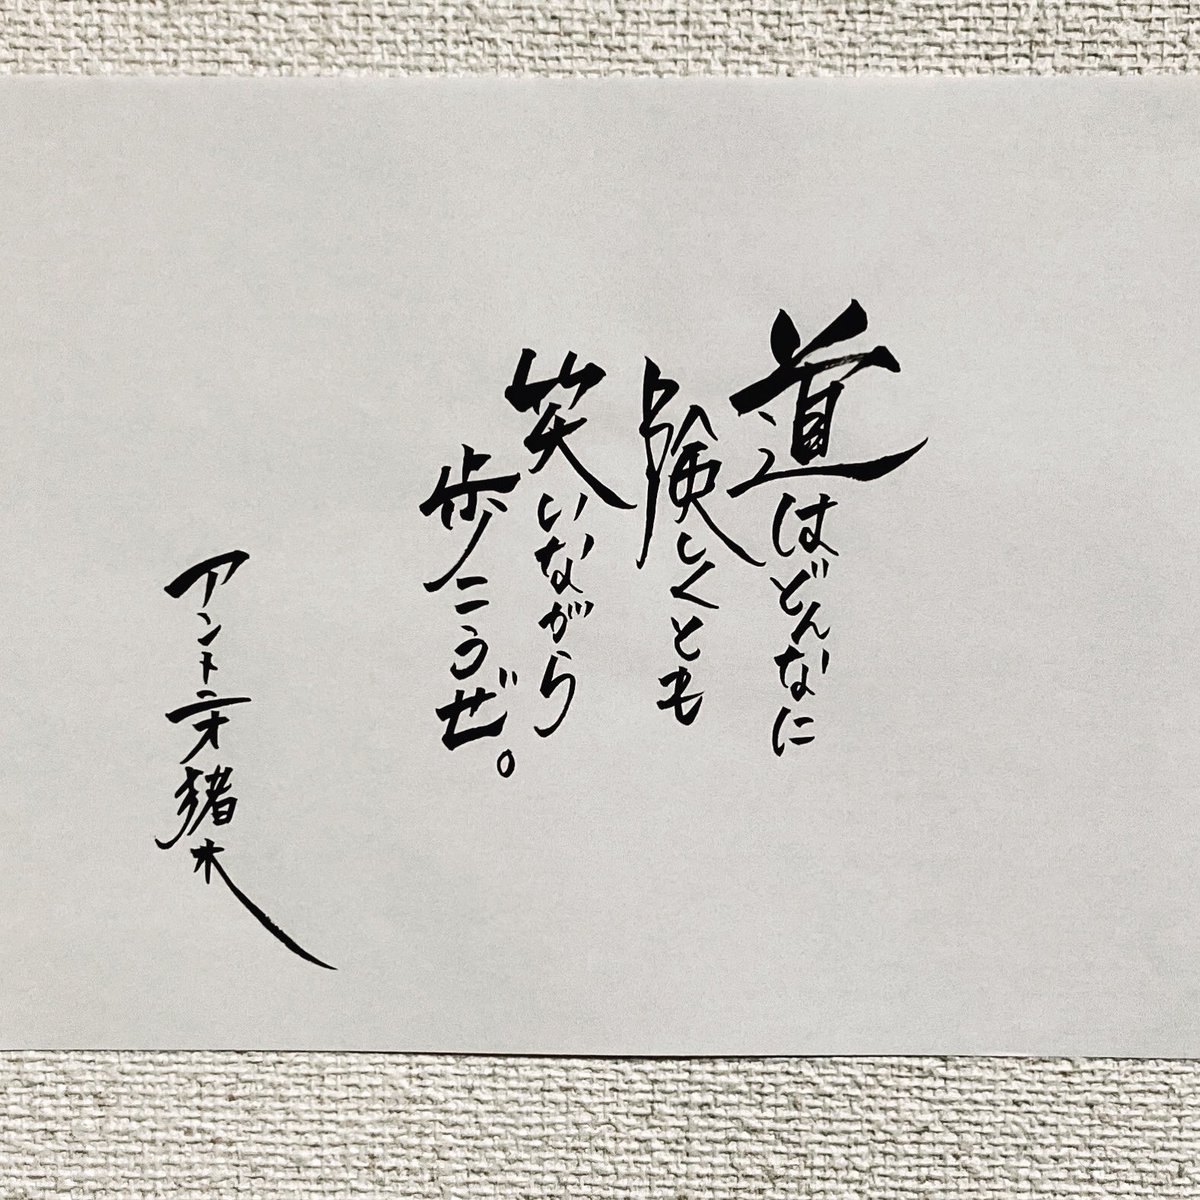 道はどんなに
険しくとも
笑いながら
歩こうぜ。
アントニオ猪木